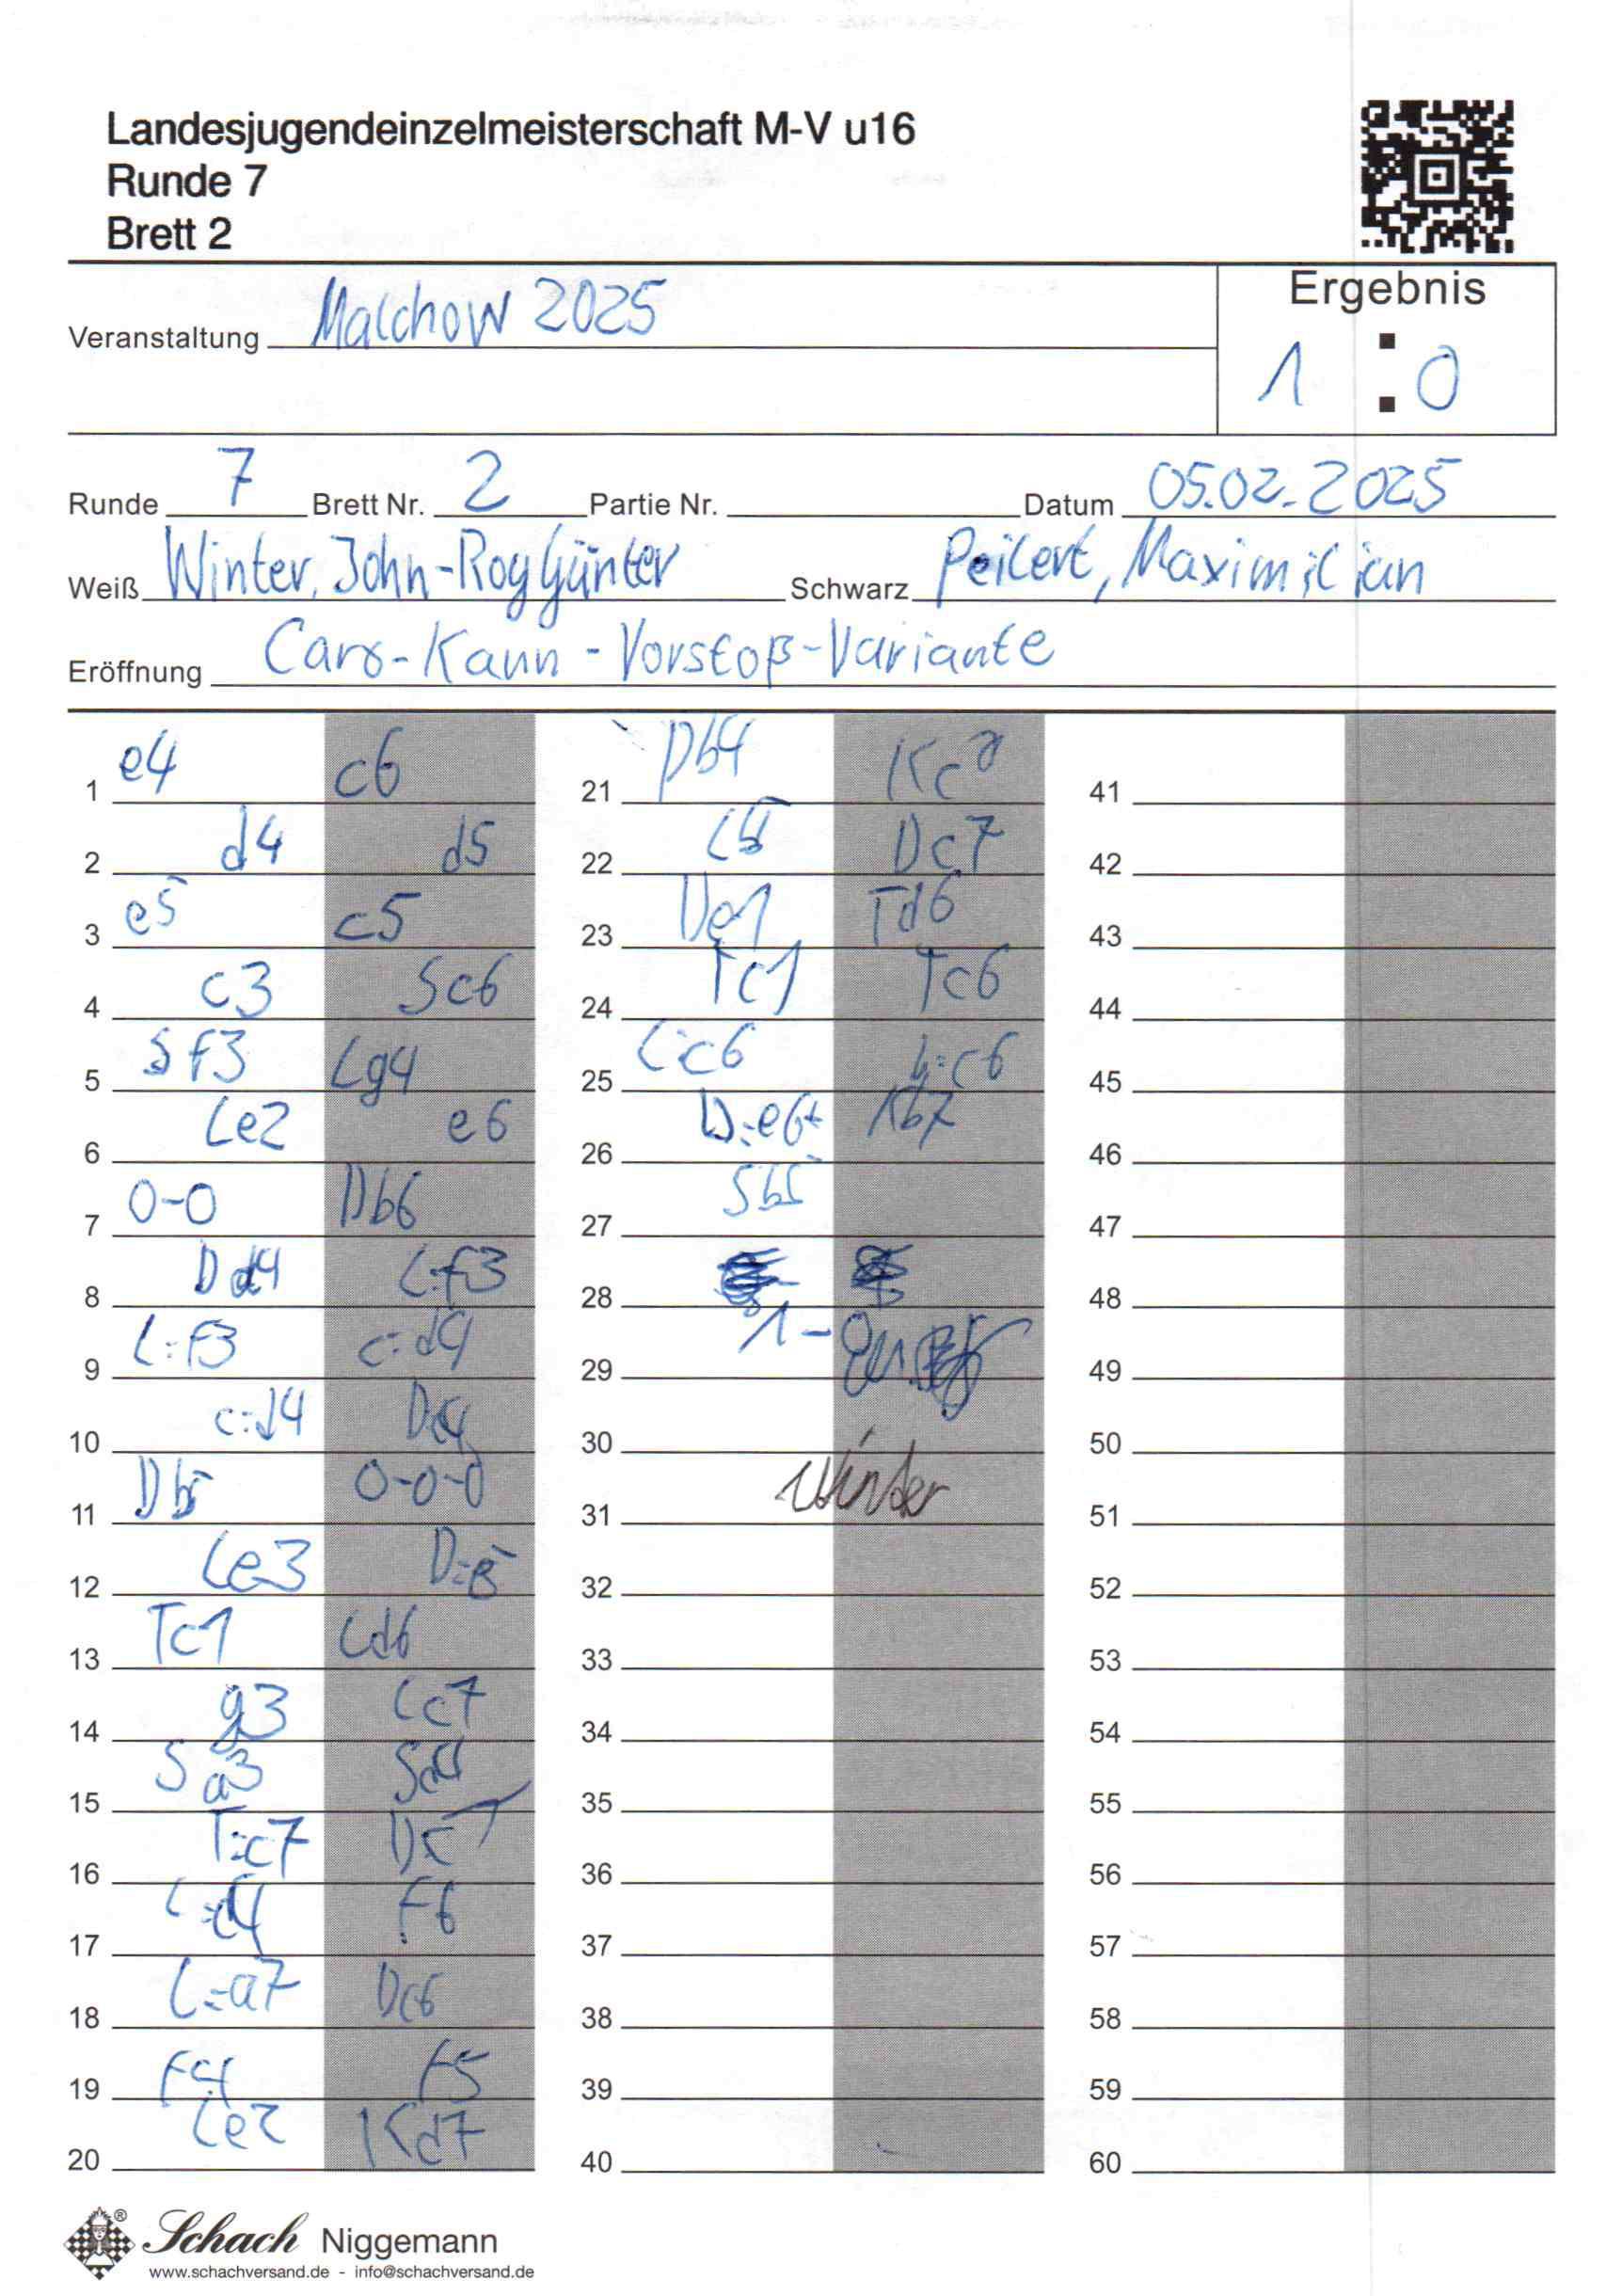 Landesjugendeinzelmeisterschaft M-V u16
Runde 7
Brett 2
Ergebnis
Veranstaltung Malchow 2025
1 : 0
Runde 7 Brett Nr. 2 Partie Nr. Datum 05.02.2025
Weiß Winter, John-Roy Günter Schwarz Peilert, Maximilian
Eröffnung Caro-Kann-Vorstoß-Variante
1 e4 c6
2 d4 d5
3 e5 c5
4 c3 Sc6
5 Sf3 Lg4
6 Le2 e6
7 0-0 Db6
8 Dd4 L:f3
9 L:f3 c:d4
10 c:d4
11 Db5 0-0-0
12 Le3
13 Tc1 Ld6
14 g3 Lc7
15 Sa3 Sd4
16 T:c7
17 L:d4 F6
18 L:a7 Dc6
19 F4 F5
20 Le2 Kd7
21 Db4 Kc8
22 Dc7
23 De1 Td6
24 Tc1 Tc6
25 L:c6 b:c6
26 D:e6+ Kb7
27 Sb5
28
29 1-0
30
31 Winter
32
33
34
35
36
37
38
39
40
41
42
43
44
45
46
47
48
49
50
51
52
53
54
55
56
57
58
59
60
Schach Niggemann
www.schachversand.de - info@schachversand.de